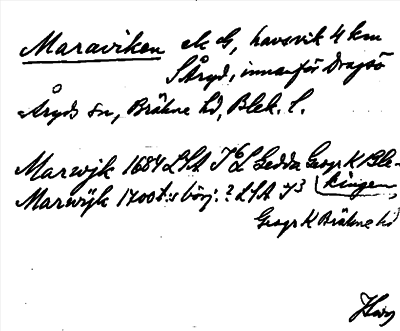 Maraviken ek G, havsvik 4 km
S Åryd, innanför Dragsö
Åryds sn, Bräkne hd, Blek. l.
Marwjk 1684 LSA Gedda Geogr K Ble-
kingen,
Marwijk 1700 t:s börj. ? LSA
Geogr K Bräkne hd